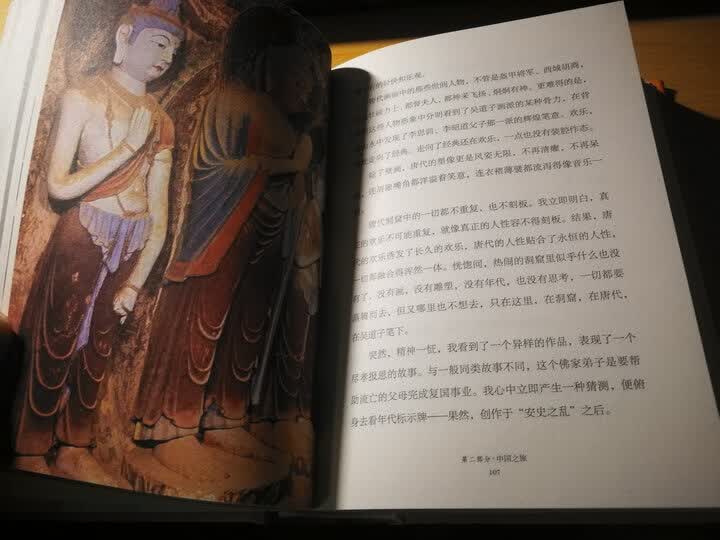 的轻快和乐观。
唐代画面中的那些世俗人物，不管是盔甲将军、西域胡商，
力士、都督夫人，都神采飞扬、炯炯有神。更难得的是，
这些人物形象中分明看到了吴道子画派的某种骨力，在背
水中发现了李思训、李昭道父子那一派的辉煌笔意。欢乐，
走向了经典，走向了经典还在欢乐，一点也没有装腔作态。
除了壁画，唐代的塑像更是风姿无限，不再清癯，不再呆
，连眉眼嘴角都洋溢着笑意，连衣褶薄襞都流泻得像音乐一
唐代洞窟中的一切都不重复，也不刻板。我立即明白，真
正的欢乐不可能重复，就像真正的人性容不得刻板。结果，唐
代的欢乐诱发了长久的欢乐，唐代的人性贴合了永恒的人性，
一切都融合得浑然一体。恍惚间，热闹的洞窟里似乎什么也没
有了，没有画，没有雕塑，没有年代，也没有思考，一切都要
蒸腾而去，但又哪里也不想去，只在这里，在洞窟，在唐代，
在吴道子笔下。
突然，精神一怔，我看到了一个异样的作品，表现了一个
尽孝报恩的故事。与一般同类故事不同，这个佛家弟子是要帮
助流亡的父母完成复国事业。我心中立即产生一种猜测，便俯
身去看年代标示牌——果然，创作于“安史之乱”之后。
第二部分·中国之旅
107